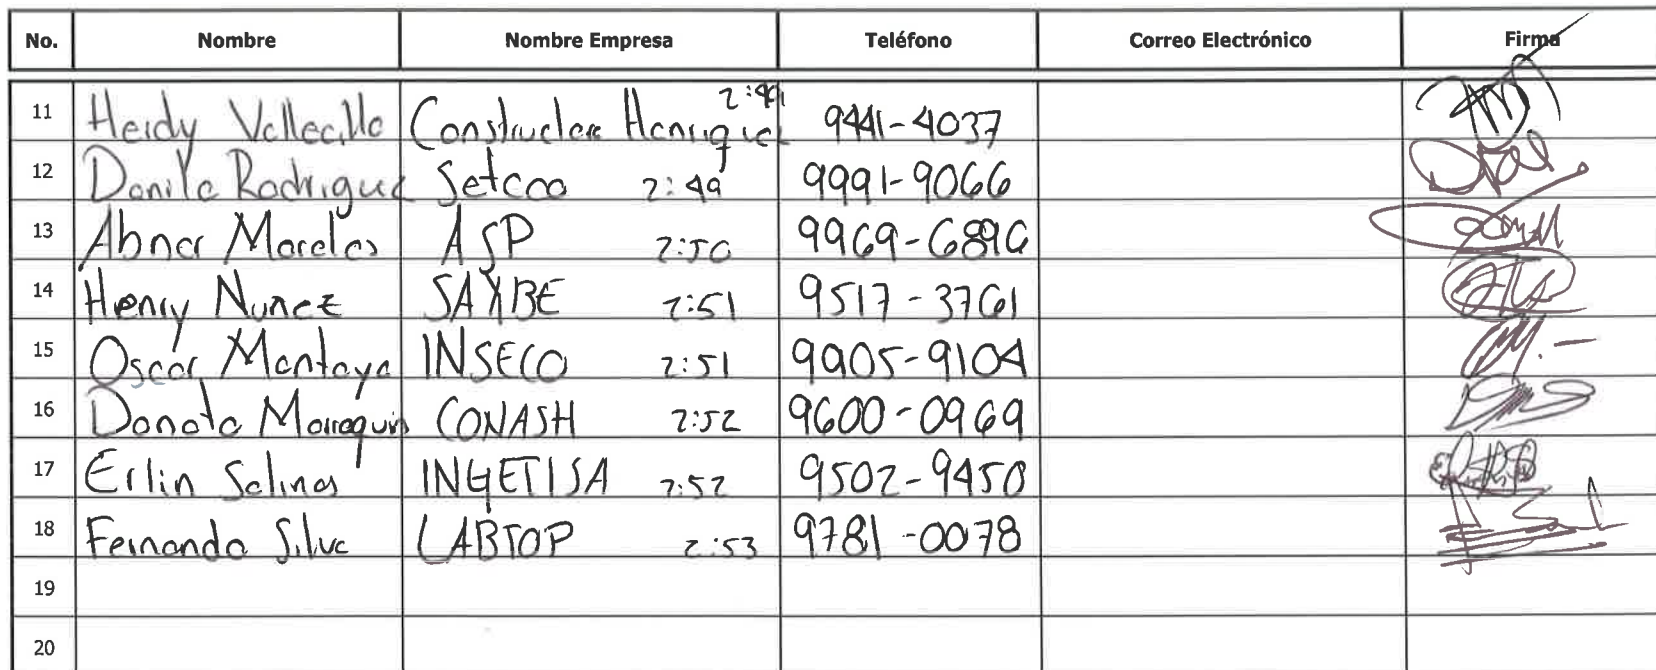 No. Nombre Nombre Empresa Teléfono Correo Electrónico Firma
11 Heidy Vallecillo Constructora Henriquez 2:49 9441-4037
12 Danilo Rodriguez Setcoo 2:49 9991-9066
13 Abner Morales ASP 2:50 9969-6896
14 Henry Nunez SAYBE 2:51 9517-3761
15 Oscar Montoya INSECO 2:51 9905-9104
16 Donato Marroquin CONASH 2:52 9600-0969
17 Erlin Salinas INGETISA 2:52 9502-9450
18 Fernando Silva LABTOP 2:53 9781-0078
19
20